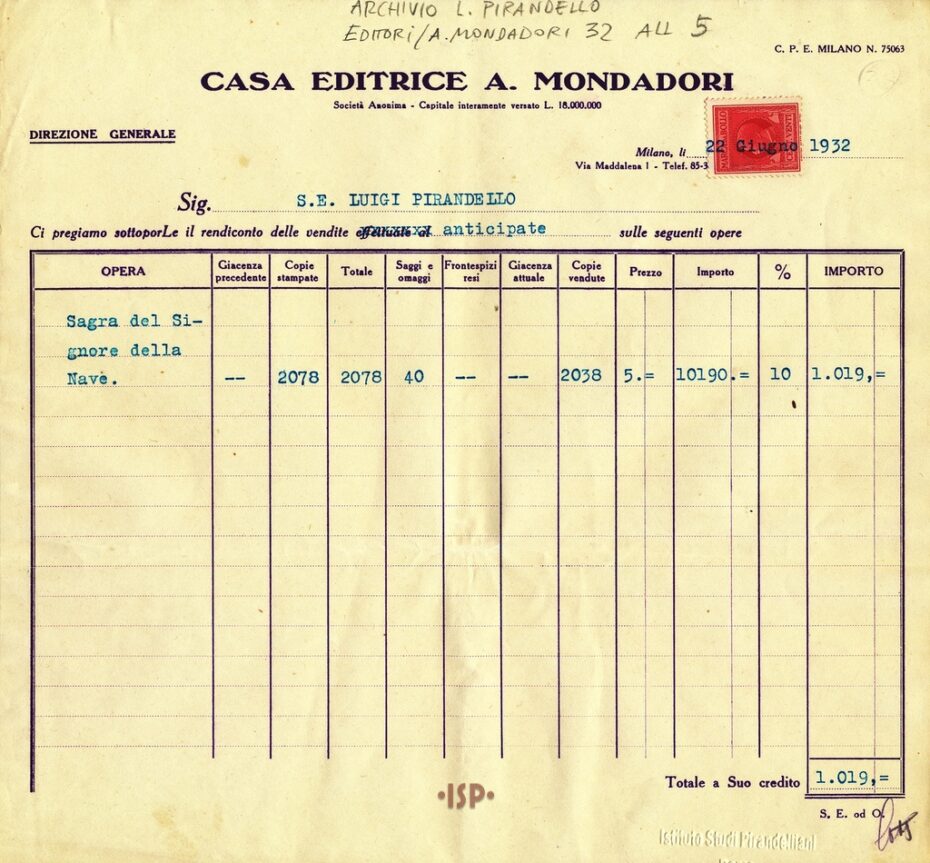 ARCHIVIO L. PIRANDELLO
EDITORI/A. MONDADORI 32 ALL 5
C. P. E. MILANO N. 75063
CASA EDITRICE A. MONDADORI
Società Anonima - Capitale interamente versato L. 18.000.000
DIREZIONE GENERALE
MARCA DA BOLLO
CENT. VENTI
Milano, li 22 Giugno 1932
Via Maddalena 1 - Telef. 85-3
Sig. S.E. LUIGI PIRANDELLO
Ci pregiamo sottoporLe il rendiconto delle vendite effettuate al anticipate sulle seguenti opere
OPERA Giacenza precedente Copie stampate Totale Saggi e omaggi Frontespizi resi Giacenza attuale Copie vendute Prezzo Importo % IMPORTO
Sagra del Si-
gnore della
Nave. -- 2078 2078 40 -- -- 2038 5.= 10190.= 10 1.019,=
Totale a Suo credito 1.019,=
•ISP•
S. E. od O.
Istituto Studi Pirandelliani